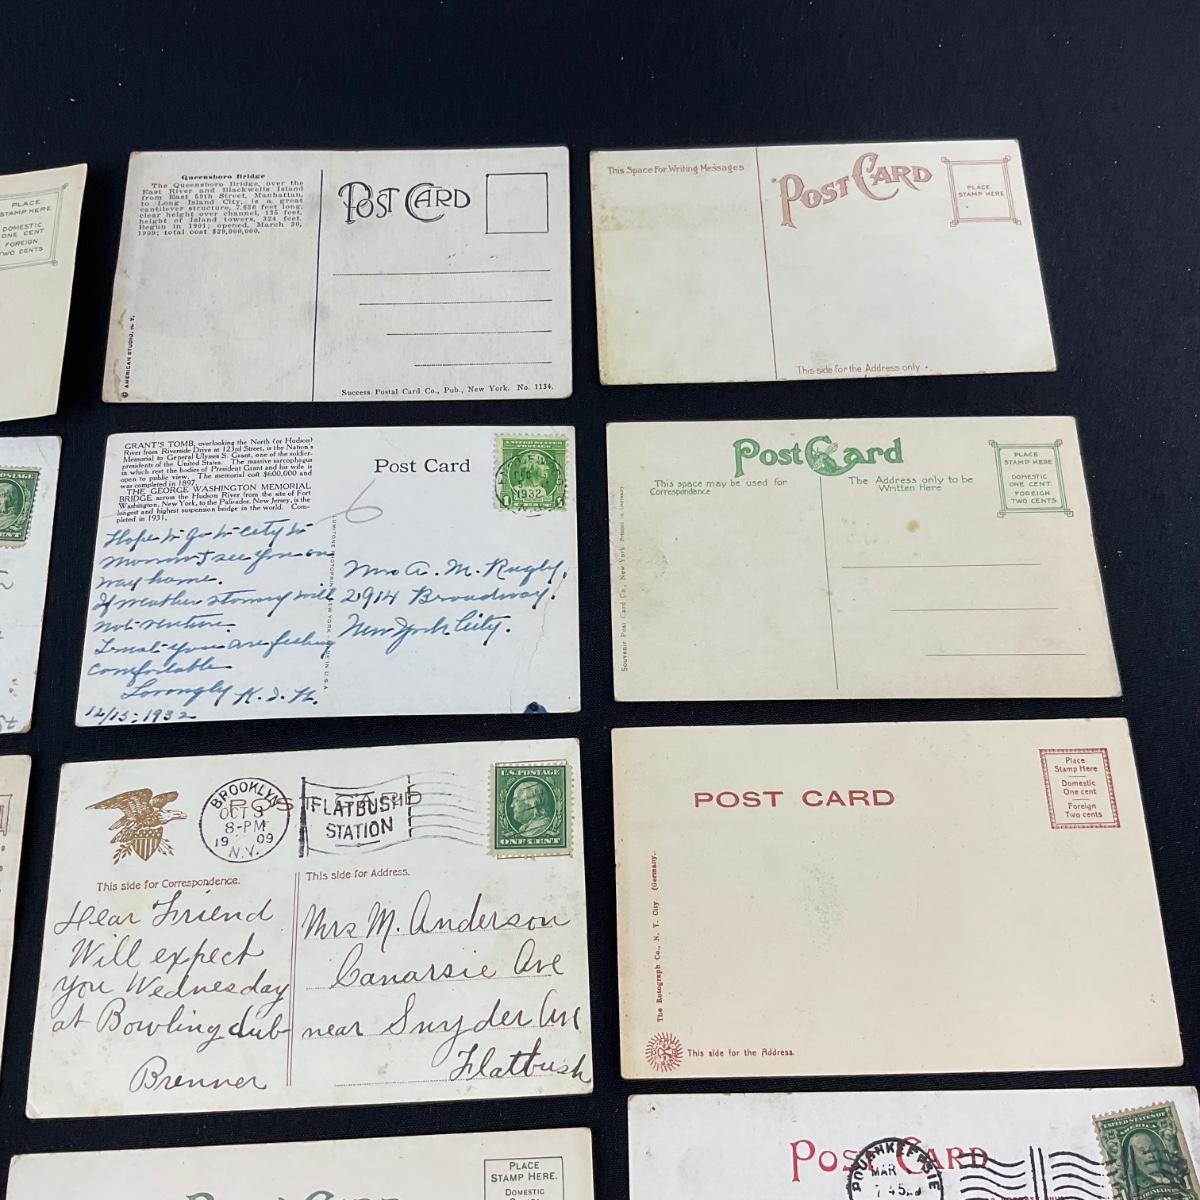 PLACE
STAMP HERE
DOMESTIC
ONE CENT
FOREIGN
TWO CENTS
Queensboro Bridge
The Queensboro Bridge, over the
East River and Blackwells Island
from East 59th Street, Manhattan,
to Long Island City, is a great
cantilever structure, 7,636 feet long,
clear height over channel, 135 feet,
height of Island towers, 324 feet.
Begun in 1901; opened, March 30,
1909; total cost $25,000,000.
POST CARD
© AMERICAN STUDIO, N. Y.
Success Postal Card Co., Pub., New York. No. 1134.
This Space For Writing Messages
POST CARD
PLACE
STAMP HERE
This side for the Address only
POSTAGE
CENT
GRANT'S TOMB, overlooking the North (or Hudson)
River from Riverside Drive at 123rd Street, is the Nation's
Memorial to General Ulysses S. Grant, one of the soldier-
presidents of the United States. The massive sarcophagus
in which rest the bodies of President Grant and his wife is
open to public view. The memorial cost $600,000 and
was completed in 1897.
THE GEORGE WASHINGTON MEMORIAL
BRIDGE across the Hudson River from the site of Fort
Washington, New York, to the Palisades, New Jersey, is the
longest and highest suspension bridge in the world. Com-
pleted in 1931.
Post Card
UNITED STATES
POSTAGE
1932
1
6
LUMITONE PHOTOPRINT NEW YORK MADE IN U.S.A.
Hope to go to City to
morrow & see you on
way home.
If weather stormy will
not venture.
Trust you are feeling
comfortable
Lovingly
12/13-1932
Mrs A. M. Rugly.
2914 Broadway.
New York City.
Post Card
This space may be used for
Correspondence
The Address only to be
Written Here
PLACE
STAMP HERE
DOMESTIC
ONE CENT
FOREIGN
TWO CENTS
Souvenir Post Card Co., New York Printed in Germany
POST CARD
BROOKLYN
OCT 3
8-PM
19 09
N.Y.
FLATBUSH
STATION
U.S. POSTAGE
ONE CENT
This side for Correspondence.
This side for Address.
Dear Friend
Will expect
you Wednesday
at Bowling club
Brenner
Mrs M. Anderson
Canarsie Ave
near Snyder Ave
Flatbush
POST CARD
Place
Stamp Here
Domestic
One cent
Foreign
Two cents
The Rotograph Co., N. Y. City (Germany.)
This side for the Address.
PLACE
STAMP HERE.
DOMESTIC
POST CARD
POUGHKEEPSIE
MAR
7 45A
UNITED STATES OF
AMERICA